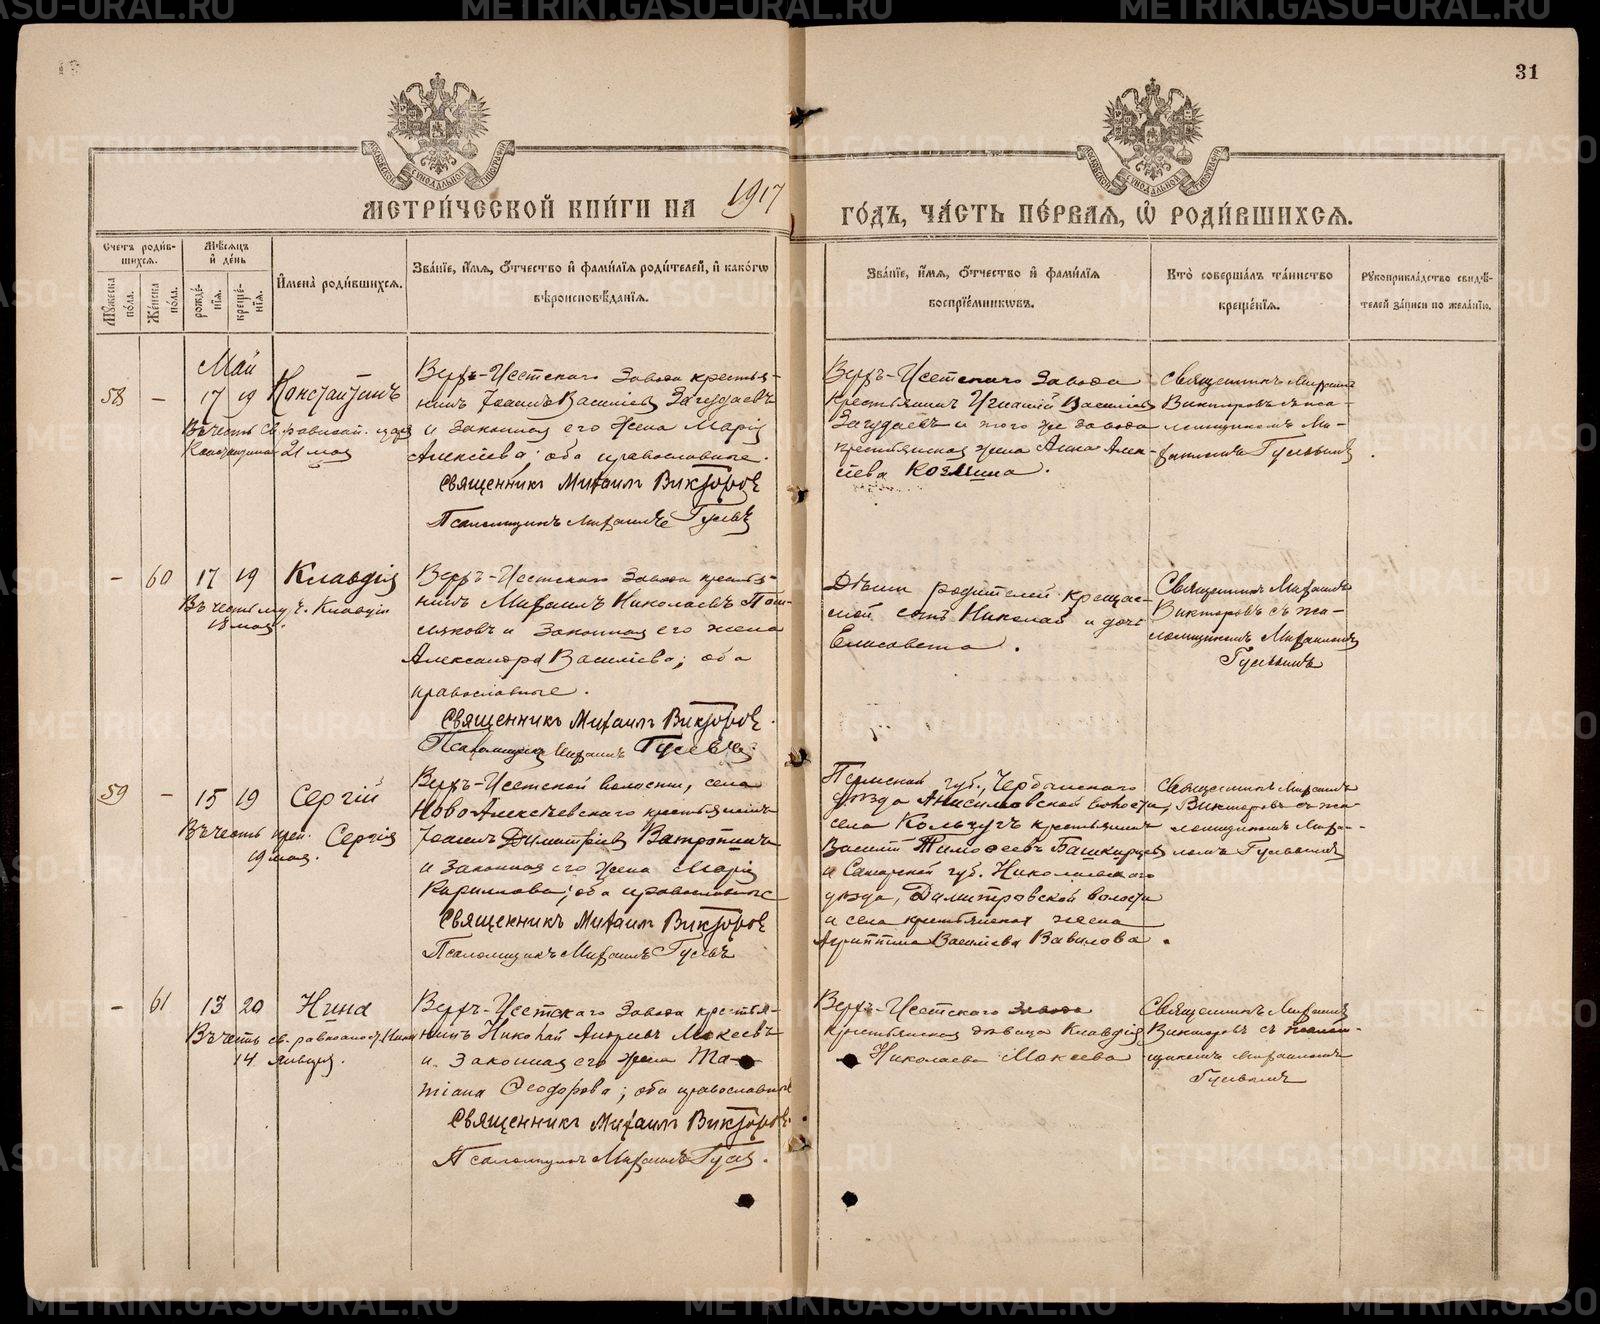 31
МОСКОВСКОЙ СѴНОДАЛЬНОЙ ТИПОГРАФІИ
МОСКОВСКОЙ СѴНОДАЛЬНОЙ ТИПОГРАФІИ
МЕТРИ́ЧЕСКОЙ КНИ́ГИ НА 1917
ГО́ДЪ, ЧА́СТЬ ПЕ́РВАЯ, Ѡ РОДИ́ВШИХСЯ.
Счетъ роди́в-
шихся.
Мѣ́сяцъ
и де́нь
Мꙋ́жеска по́ла.
Же́нска по́ла.
рожде́нїя.
креще́нїя.
И҆мена̀ роди́вшихся.
Зва́нїе, и҆́мя, о҆́тчество и҆ фами́лїя роди́телей, и҆ како́гѡ
вѣроисповѣ́данїя.
Зва́нїе, и҆́мя, о҆́тчество и҆ фами́лїя
воспрїе́мникѡвъ.
Кто̀ соверша́лъ та́инство
креще́нїя.
Рꙋкоприкла́дство свидѣ́-
телей за́писи по жела́нїю.
Май
58 – 17 19 Константинъ
Въ честь св. равноап. царя
Константина 21 мая
Верхъ-Исетскаго Завода крестья-
нинъ Іоаннъ Василіевъ Загудаевъ
и законная его жена Марія
Алексіева; оба православные.
Священникъ Михаилъ Викторовъ
Псаломщикъ Михаилъ Гусевъ
Верхъ-Исетскаго Завода
крестьянинъ Игнатій Василіевъ
Загудаевъ и того же завода
крестьянская жена Анна Алек-
сіева Козмина.
Священникъ Михаилъ
Викторовъ съ пса-
ломщикомъ Ми-
хаиломъ Гусевымъ
– 60 17 19 Клавдія
Въ честь муч. Клавдіи
18 мая.
Верхъ-Исетскаго Завода крестья-
нинъ Михаилъ Николаевъ
и законная его жена
Александра Василіева; оба
православные.
Священникъ Михаилъ Викторовъ.
Псаломщикъ Михаилъ Гусевъ
Дѣти родителей крещае-
мой сынъ Николай и дочь
Елисавета.
Священникъ Михаилъ
Викторовъ съ пса-
ломщикомъ Михаиломъ
Гусевымъ
59 – 15 19 Сергій
Въ честь преп. Сергія
19 мая.
Верхъ-Исетской волости, села
Ново-Алексѣевскаго крестьянинъ
Іоаннъ Димитріевъ Ватропинъ
и законная его жена Марія
Кириллова; оба православные
Священникъ Михаилъ Викторовъ
Псаломщикъ Михаилъ Гусевъ
Пермской губ., Чердынскаго
уѣзда Анисимовской волости,
села Кольчугъ крестьянинъ
Василій Тимофеевъ Башкирцевъ
и Самарской губ. Николаевскаго
уѣзда, Дмитровской волости
и села крестьянская жена
Агриппина Василіева Вавилова.
Священникъ Михаилъ
Викторовъ съ пса-
ломщикомъ Михаи-
ломъ Гусевымъ
– 61 13 20 Нина
Въ честь св. равноапост. Нины
14 Января.
Верхъ-Исетскаго Завода крестья-
нинъ Николай Андреевъ Мокеевъ
и законная его жена Та-
тіана Ѳеодорова; оба православные
Священникъ Михаилъ Викторовъ.
Псаломщикъ Михаилъ Гусевъ.
Верхъ-Исетскаго завода
крестьянская дѣвица Клавдія
Николаева Мокеева
Священникъ Михаилъ
Викторовъ съ псалом-
щикомъ Михаиломъ
Гусевымъ
METRIKI.GASO-URAL.RU